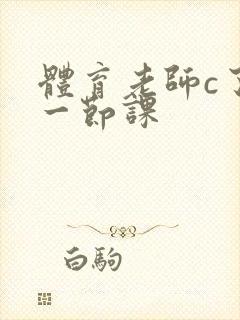 體育老師c了
一節課
白駒